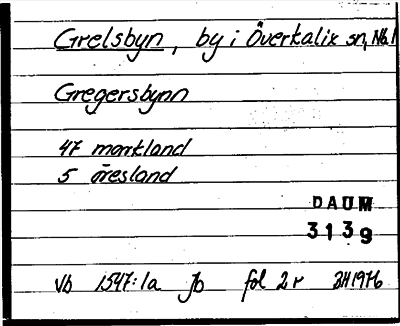 Grelsbyn, by i Överkalix sn, Nb.l
Gregersbynn
47 markland
5 öresland
DAUM
3139
Vb 1547:1a Jb fol 2r BH1976